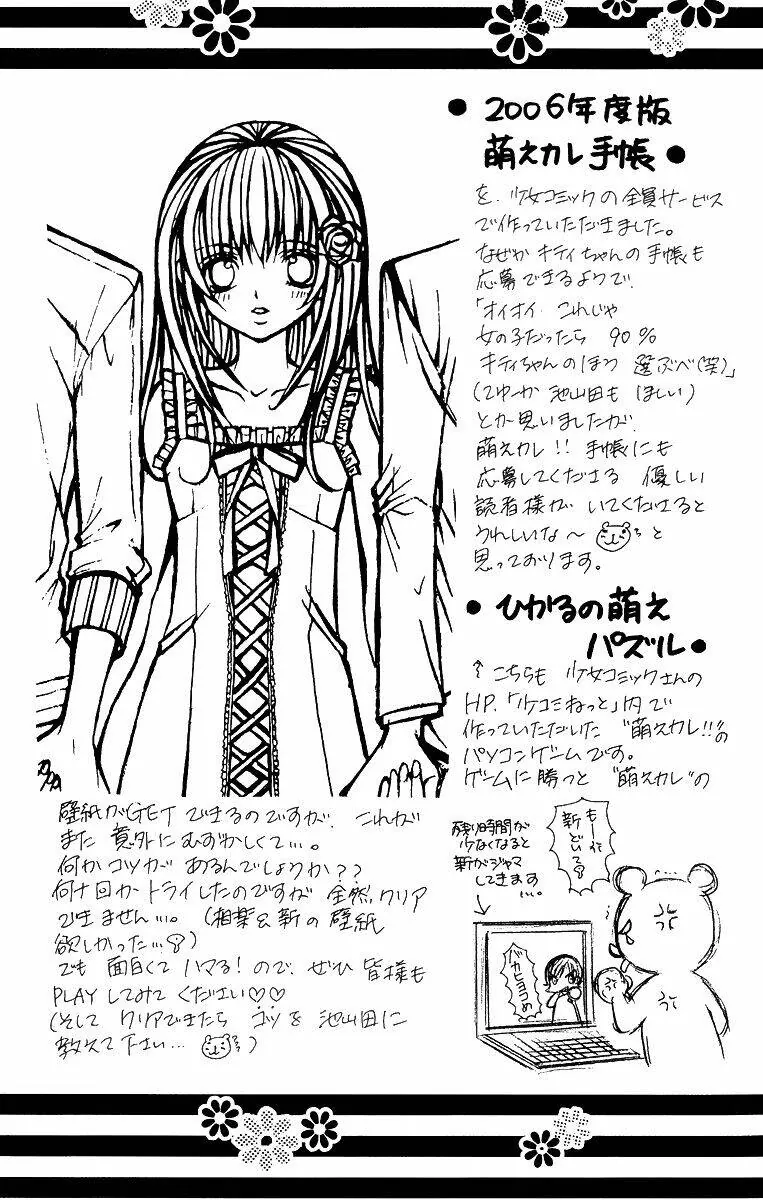 ● 2006年度版
萌えカレ手帳 ●
を、少女コミックの全員サービス
で作っていただきました。
なぜか キティちゃんの手帳も
応募できるようで、
「オイオイ これじゃ
女の子だったら 90%
キティちゃんのほう 選ぶべ(笑)」
(てゆーか 池山田も ほしい)
とか思いましたが、
萌えカレ!! 手帳にも
応募してくださる 優しい
読者様が いてくださると
うれしいな〜 と
思っております。
● ひかるの萌え
パズル ●
↑こちらも 少女コミックさんの
HP、「少コミねっと」内で
作っていただいた "萌えカレ!!"の
パソコンゲームです。
ゲームに勝つと "萌えカレ"の
壁紙がGET できるのですが、これが
また 意外にむずかしくて…。
何かコツが あるんでしょうか??
何十回かトライしたのですが 全然クリア
できません…。(相楽&新の壁紙
欲しかった…)
でも 面白くて ハマる!ので、ぜひ 皆様も
PLAYしてみて ください♡♡
(そして クリアできたら コツを 池山田に
教えて下さい… )
残り時間が
少なくなると
新がジャマ
してきます
…。
もー
新
どいてろ